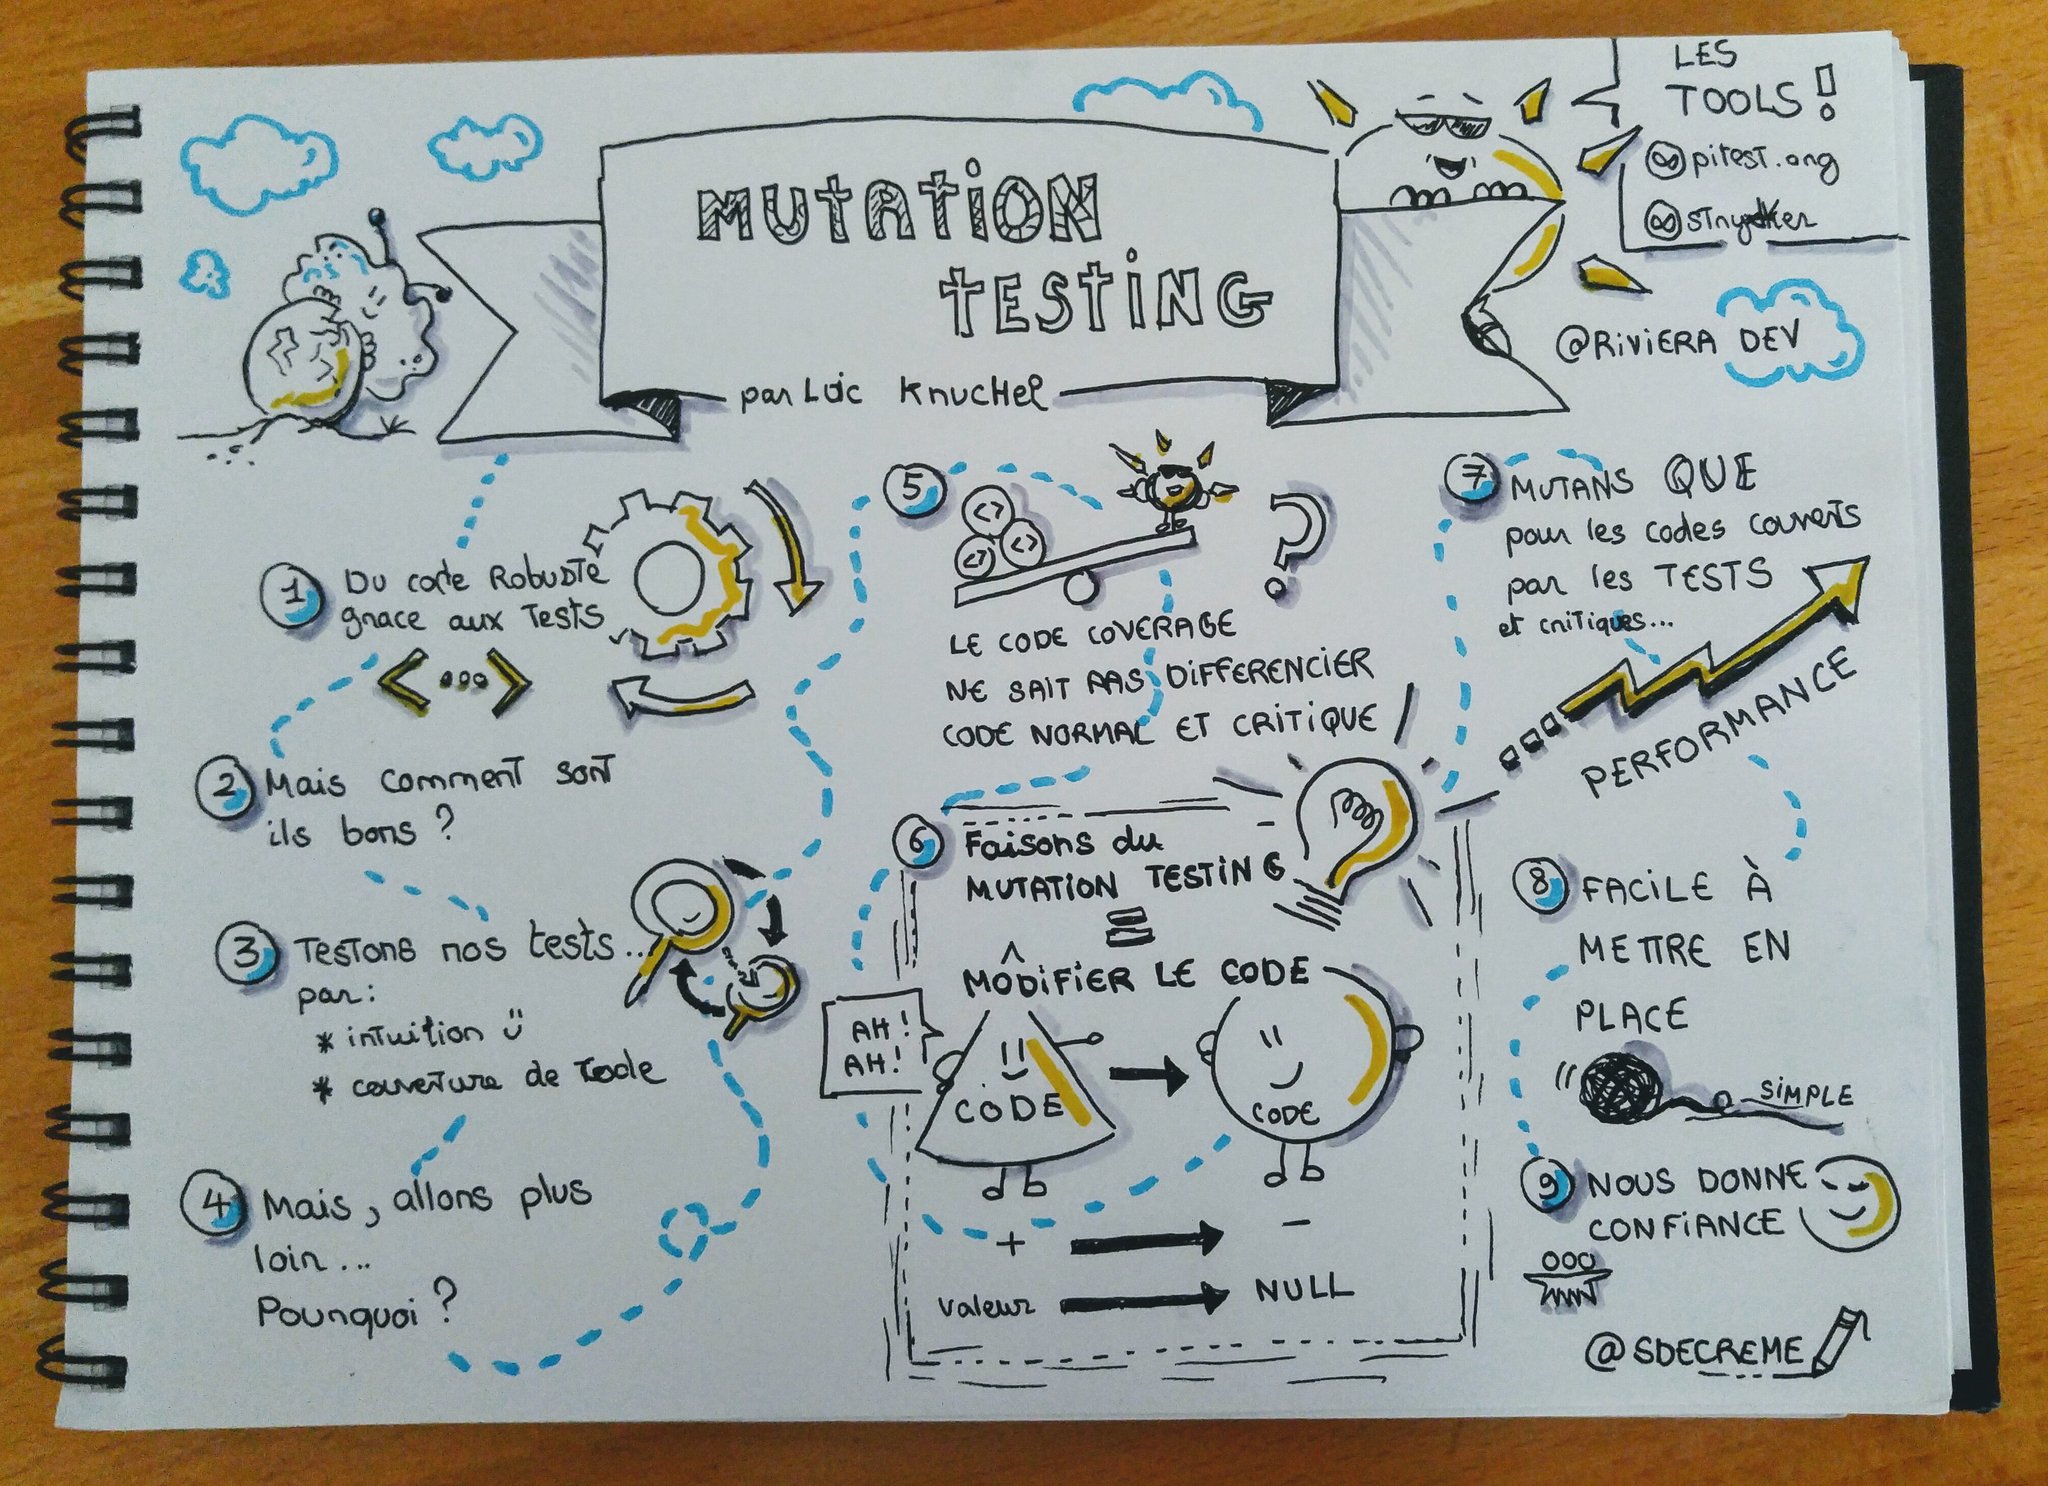 MUTATION
TESTING
par Loïc Knuchel
LES
TOOLS!
pitest.org
stryker
@RIVIERA DEV
1 Du code Robuste
grace aux Tests
<...>
2 Mais comment sont
ils bons ?
3 Testons nos tests...
par:
* intuition
* couverture de code
4 Mais, allons plus
loin...
Pourquoi ?
5
<> <> <>
?
LE CODE COVERAGE
NE SAIT PAS DIFFERENCIER
CODE NORMAL ET CRITIQUE
6 Faisons du
MUTATION TESTING
=
MODIFIER LE CODE
AH!
AH!
CODE
CODE
+ -
valeur NULL
7 MUTANS QUE
pour les codes couverts
par les TESTS
et critiques...
PERFORMANCE
8 FACILE À
METTRE EN
PLACE
SIMPLE
9 NOUS DONNE
CONFIANCE
@SDECREME